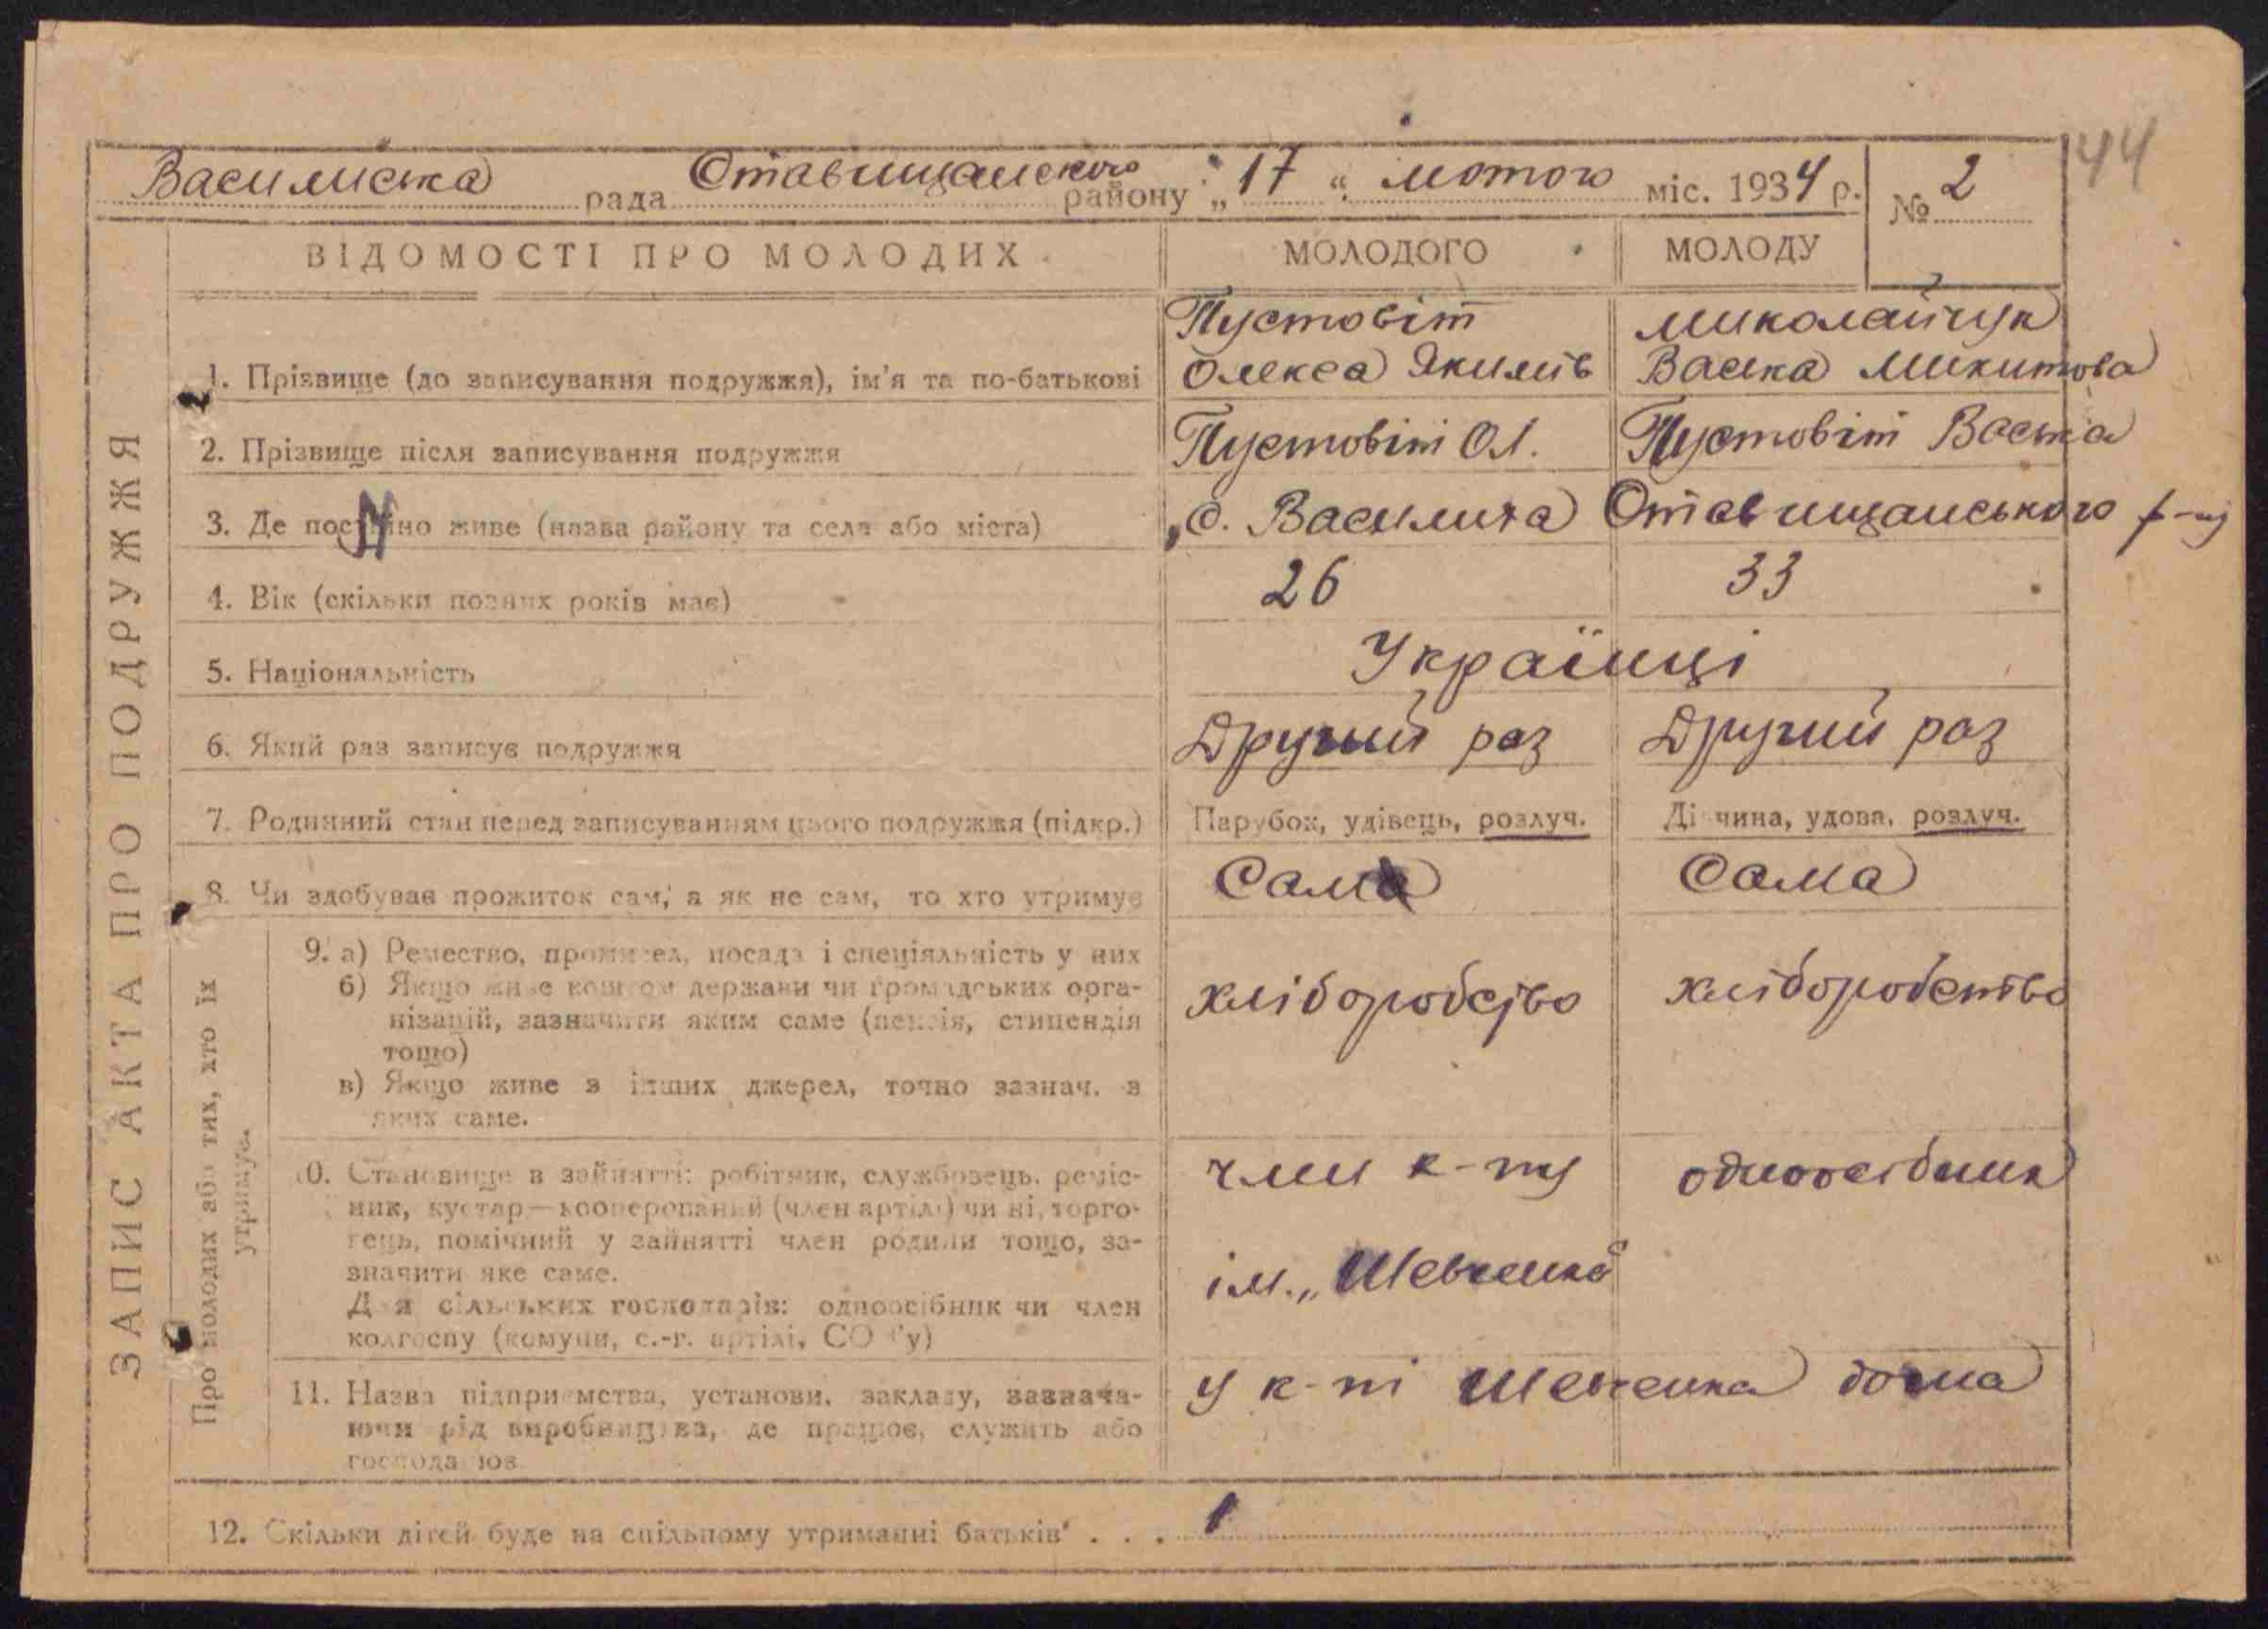 44
Василиська рада Ставищанского району „17“ лютого міс. 1934 р. № 2
ВІДОМОСТІ ПРО МОЛОДИХ МОЛОДОГО МОЛОДУ
ЗАПИС АКТА ПРО ПОДРУЖЖЯ
1. Прізвище (до записування подружжя), ім'я та по-батькові
Пустовіт
Олекса Якимів
Миколайчук
Васька Микитова
2. Прізвище після записування подружжя Пустовіт Ол. Пустовіт Васька
3. Де постійно живе (назва району та села або міста) с. Василиха Ставищанського р-ну
4. Вік (скільки повних років має) 26 33
5. Національність Українці
6. Який раз записує подружжя Другий раз Другий раз
7. Родинний стан перед записуванням цього подружжя (підкр.) Парубок, удівець, розлуч. Дівчина, удова, розлуч.
8. Чи здобував прожиток сам, а як не сам, то хто утримує Сам Сама
Про молодих або тих, хто їх
утримує.
9. а) Ремество, промисел, посада і спеціяльність у них
б) Якщо живе коштом держави чи громадських орга-
нізацій, зазначити яким саме (пенсія, стипендія
тощо)
в) Якщо живе з інших джерел, точно зазнач. з
яких саме.
хліборобсво хліборобство
10. Становище в зайнятті: робітник, службовець, реміс-
ник, кустар—кооперований (член артілі) чи ні, торго-
вець, помічний у зайнятті член родини тощо, за-
значити яке саме.
Для сільських господарів: одноосібник чи член
колгоспу (комуни, с.-г. артілі, СОЗ'у)
член к-ту одноосібник
ім. „Шевченка“
11. Назва підприємства, установи, закладу, зазнача-
ючи рід виробництва, де працює, служить або
господарює
у к-ті Шевченка дома
12. Скільки дітей буде на спільному утриманні батьків . . . 1